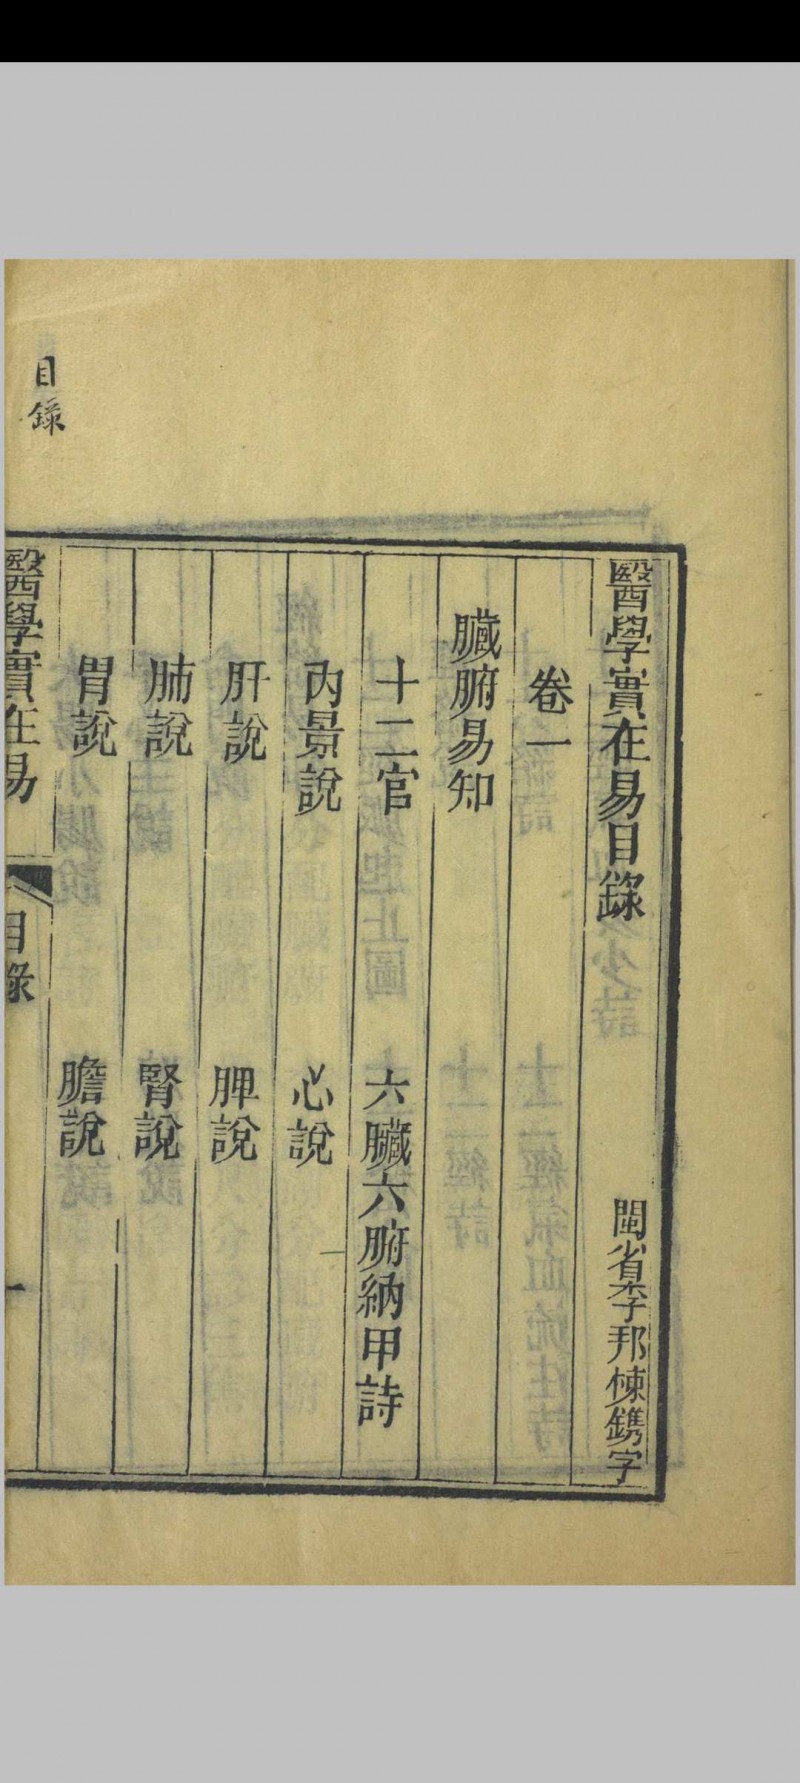 醫學實在易目錄
閩省李邦棟鐫字
卷一
臟腑易知
十二官
六臟六腑納甲詩
內景說
心說
肝說
脾說
肺說
腎說
胃說
膽說
醫學實在易
目錄
一
目錄